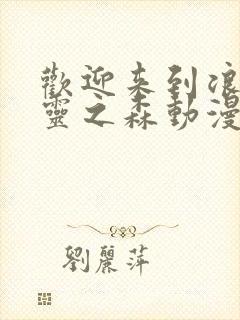 歡迎来到浪
靈之森動漫
劉麗萍